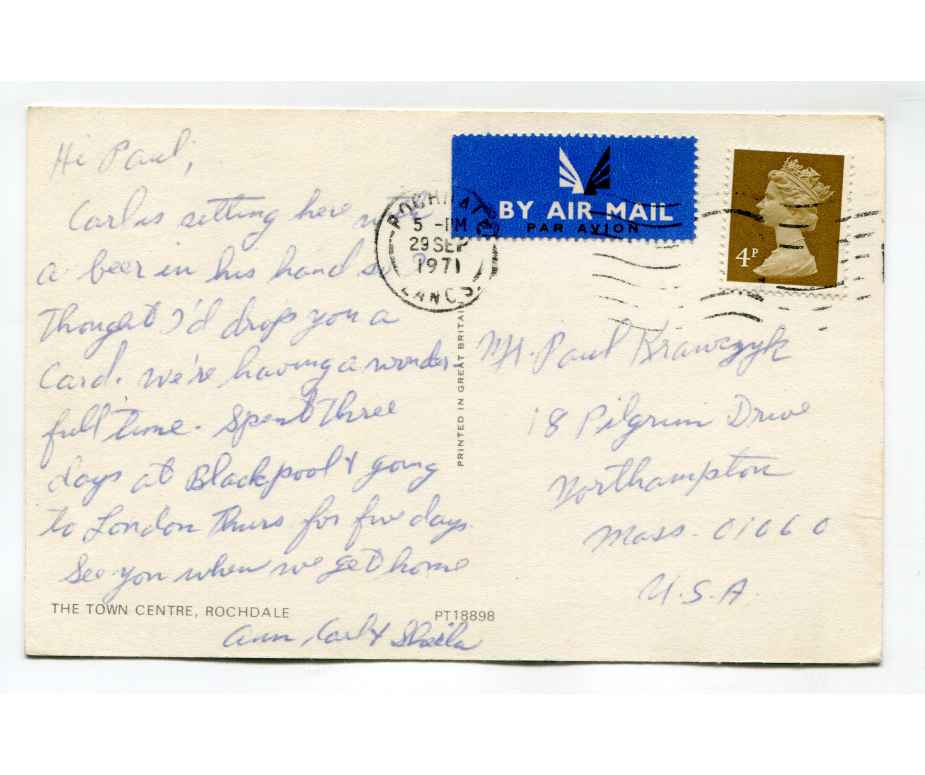 Hi Paul,
Carl is setting here
a beer in his hand so
thought I'd drop you a
card. We're having a wonder
full time. Spent three
days at Blackpool & going
to London Thurs for five days
See you when we get home
Ann, Carl & Sheila
THE TOWN CENTRE, ROCHDALE
PT18898
PRINTED IN GREAT BRITAIN
BY AIR MAIL
PAR AVION
ROCHDALE
5 - PM
29 SEP
1971
LANCS.
4P
Mr. Paul Krawczyk
18 Pilgrim Drive
Northampton
Mass. 01060
U.S.A.